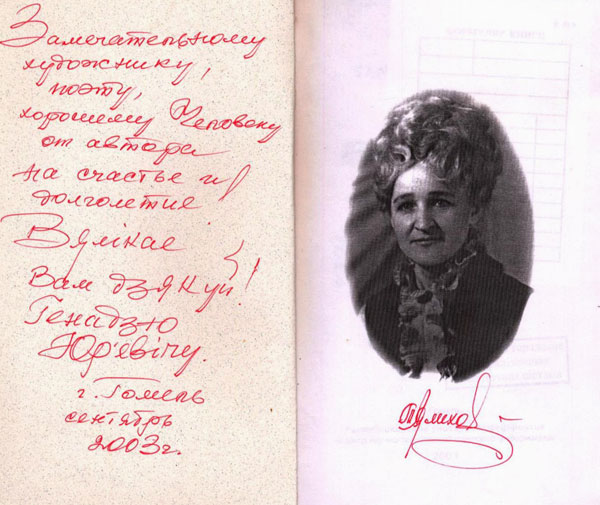 Замечательному
художнику,
поэту,
хорошему Человеку
от автора
на счастье и
долголетие!
Вялікае
Вам дзякуй!
Генадзю
Юр'евічу.
г. Гомель
сентябрь
2003г.